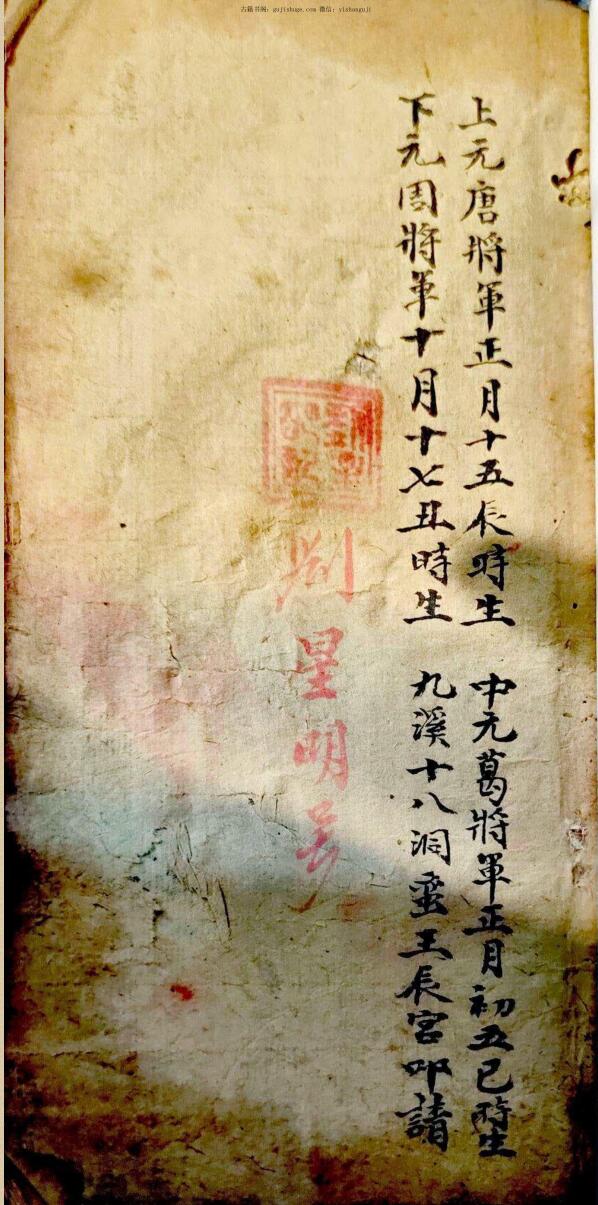 古籍书阁：gujishuge.com 微信：yishanguji
上元唐將軍正月十五辰時生　中元葛將軍正月初五巳時生
下元周將軍十月十七丑時生　九溪十八洞蛮王辰宫叩請
劉星明号